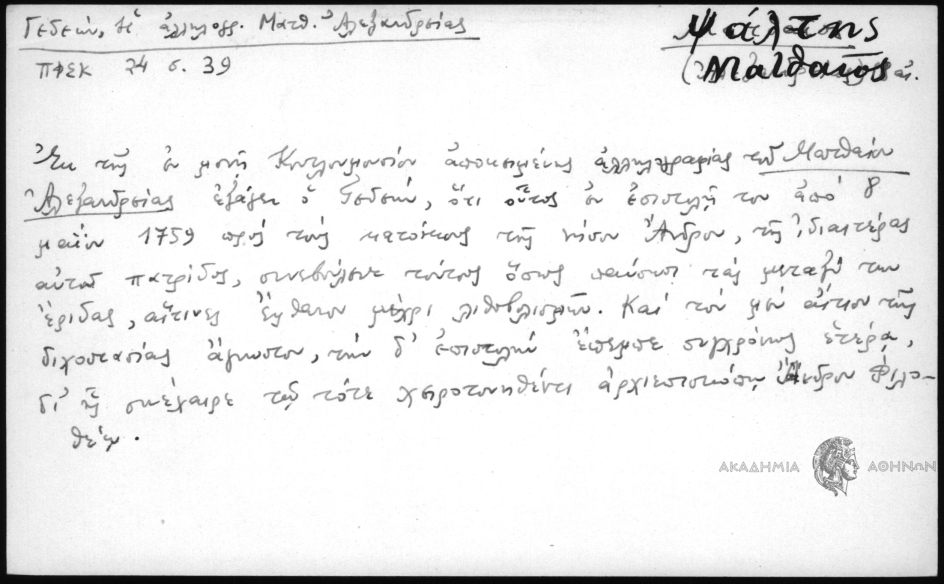 Γεδεών, Ἡ ἀλληλογρ. Ματθ. Ἀλεξανδρείας
Ψάλτης
ΠΦΣΚ 24 σ. 39
Ματθαῖος
Ἐκ τῆς ἐν μονῇ Κουτλουμουσίου ἀποκειμένης ἀλληλογραφίας τοῦ Ματθαίου
Ἀλεξανδρείας ἐξάγει ὁ Γεδεών, ὅτι οὗτος ἐν ἐπιστολῇ του ἀπό 8
μαΐου 1759 πρός τούς κατοίκους τῆς νήσου Ἄνδρου, τῆς ἰδιαιτέρας
αὐτοῦ πατρίδος, συνεβούλευε τούτους ὅπως παύσωσι τάς μεταξύ των
ἔριδας, αἵτινες ἔφθανον μέχρι λιθοβολισμῶν. Καί τόν μέν αἴτιον τῆς
διχοστασίας ἄγνωστον, τήν δ' ἐπιστολήν ἔπεμψε συγχρόνως ἑτέρᾳ,
δι' ἧς συνέχαιρε τῷ τότε χειροτονηθέντι ἀρχιεπισκόπῳ Ἄνδρου Φιλο-
θέῳ.
ΑΚΑΔΗΜΙΑ ΑΘΗΝΩΝ